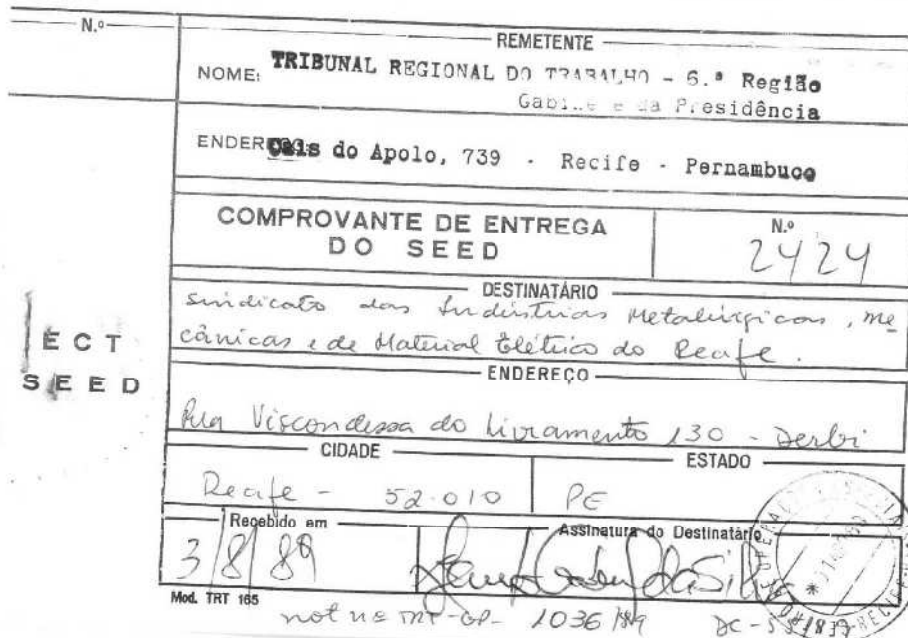 N.º
REMETENTE
NOME: TRIBUNAL REGIONAL DO TRABALHO - 6.ª Região
Gabinete da Presidência
ENDEREÇO: Cais do Apolo, 739 - Recife - Pernambuco
COMPROVANTE DE ENTREGA
DO SEED
N.º
2424
DESTINATÁRIO
Sindicato das Indústrias Metalúrgicas, Me
cânicas e de Material Elétrico do Recife.
ECT
SEED
ENDEREÇO
Rua Viscondessa do Livramento 130 - Derbi
CIDADE
Recife - 52.010
ESTADO
PE
Recebido em
3/8/89
Assinatura do Destinatário
Mod. TRT 165
not nº TRT-GP- 1036/89